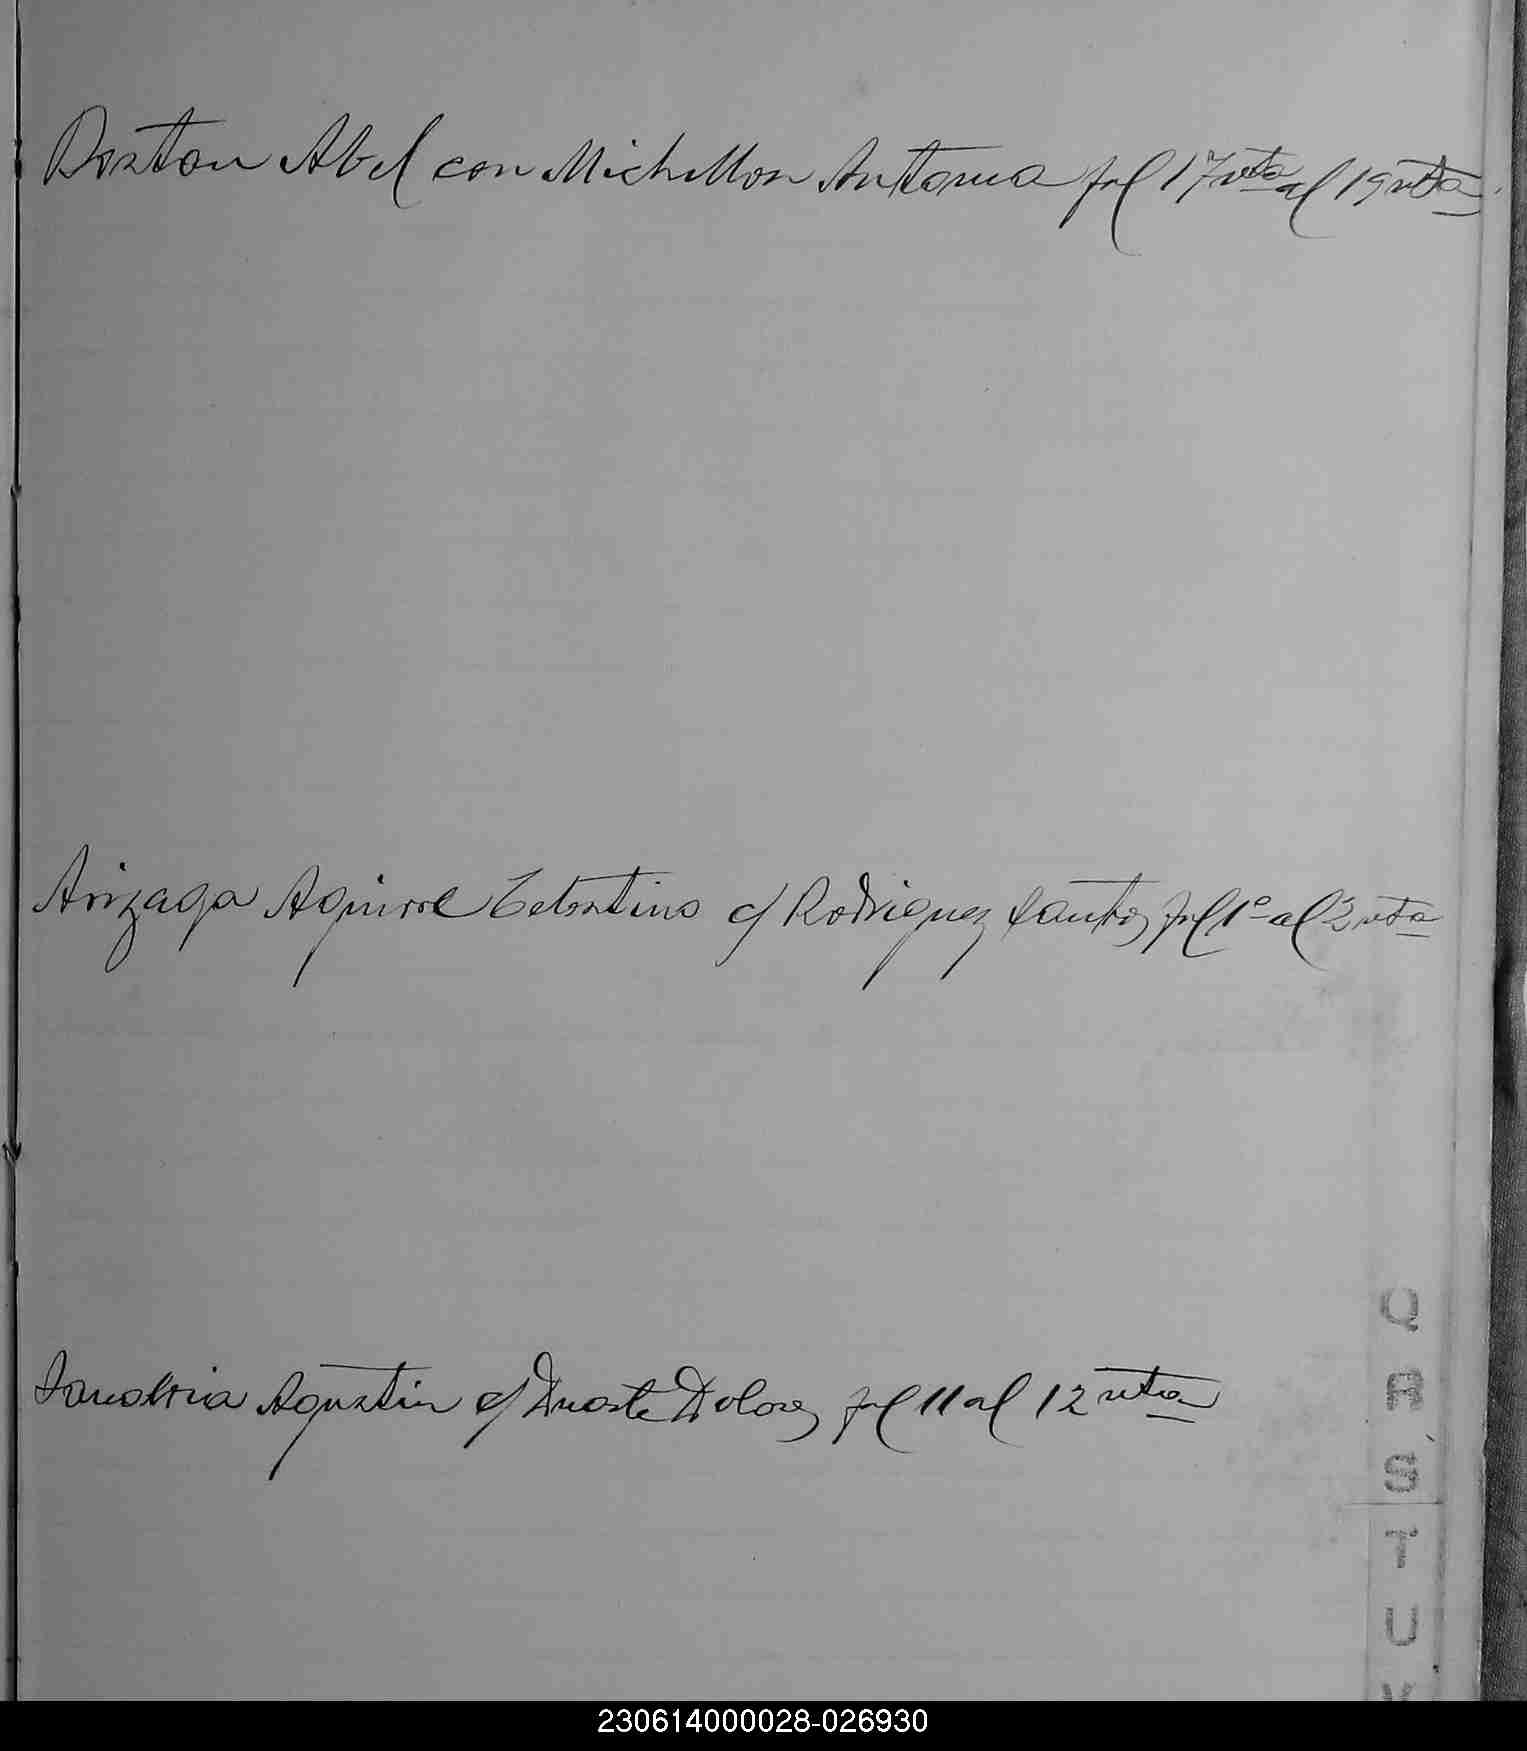 Boston Abel con Michellon Antonia fol 17 vta al 19 vta
Arizaga Aguirre Celestino c/ Rodriguez Santos fol 1º al 2 vta
Agustin c/ Duarte Dolores fol 11 al 12 vta
Q
R
S
T
U
230614000028-026930